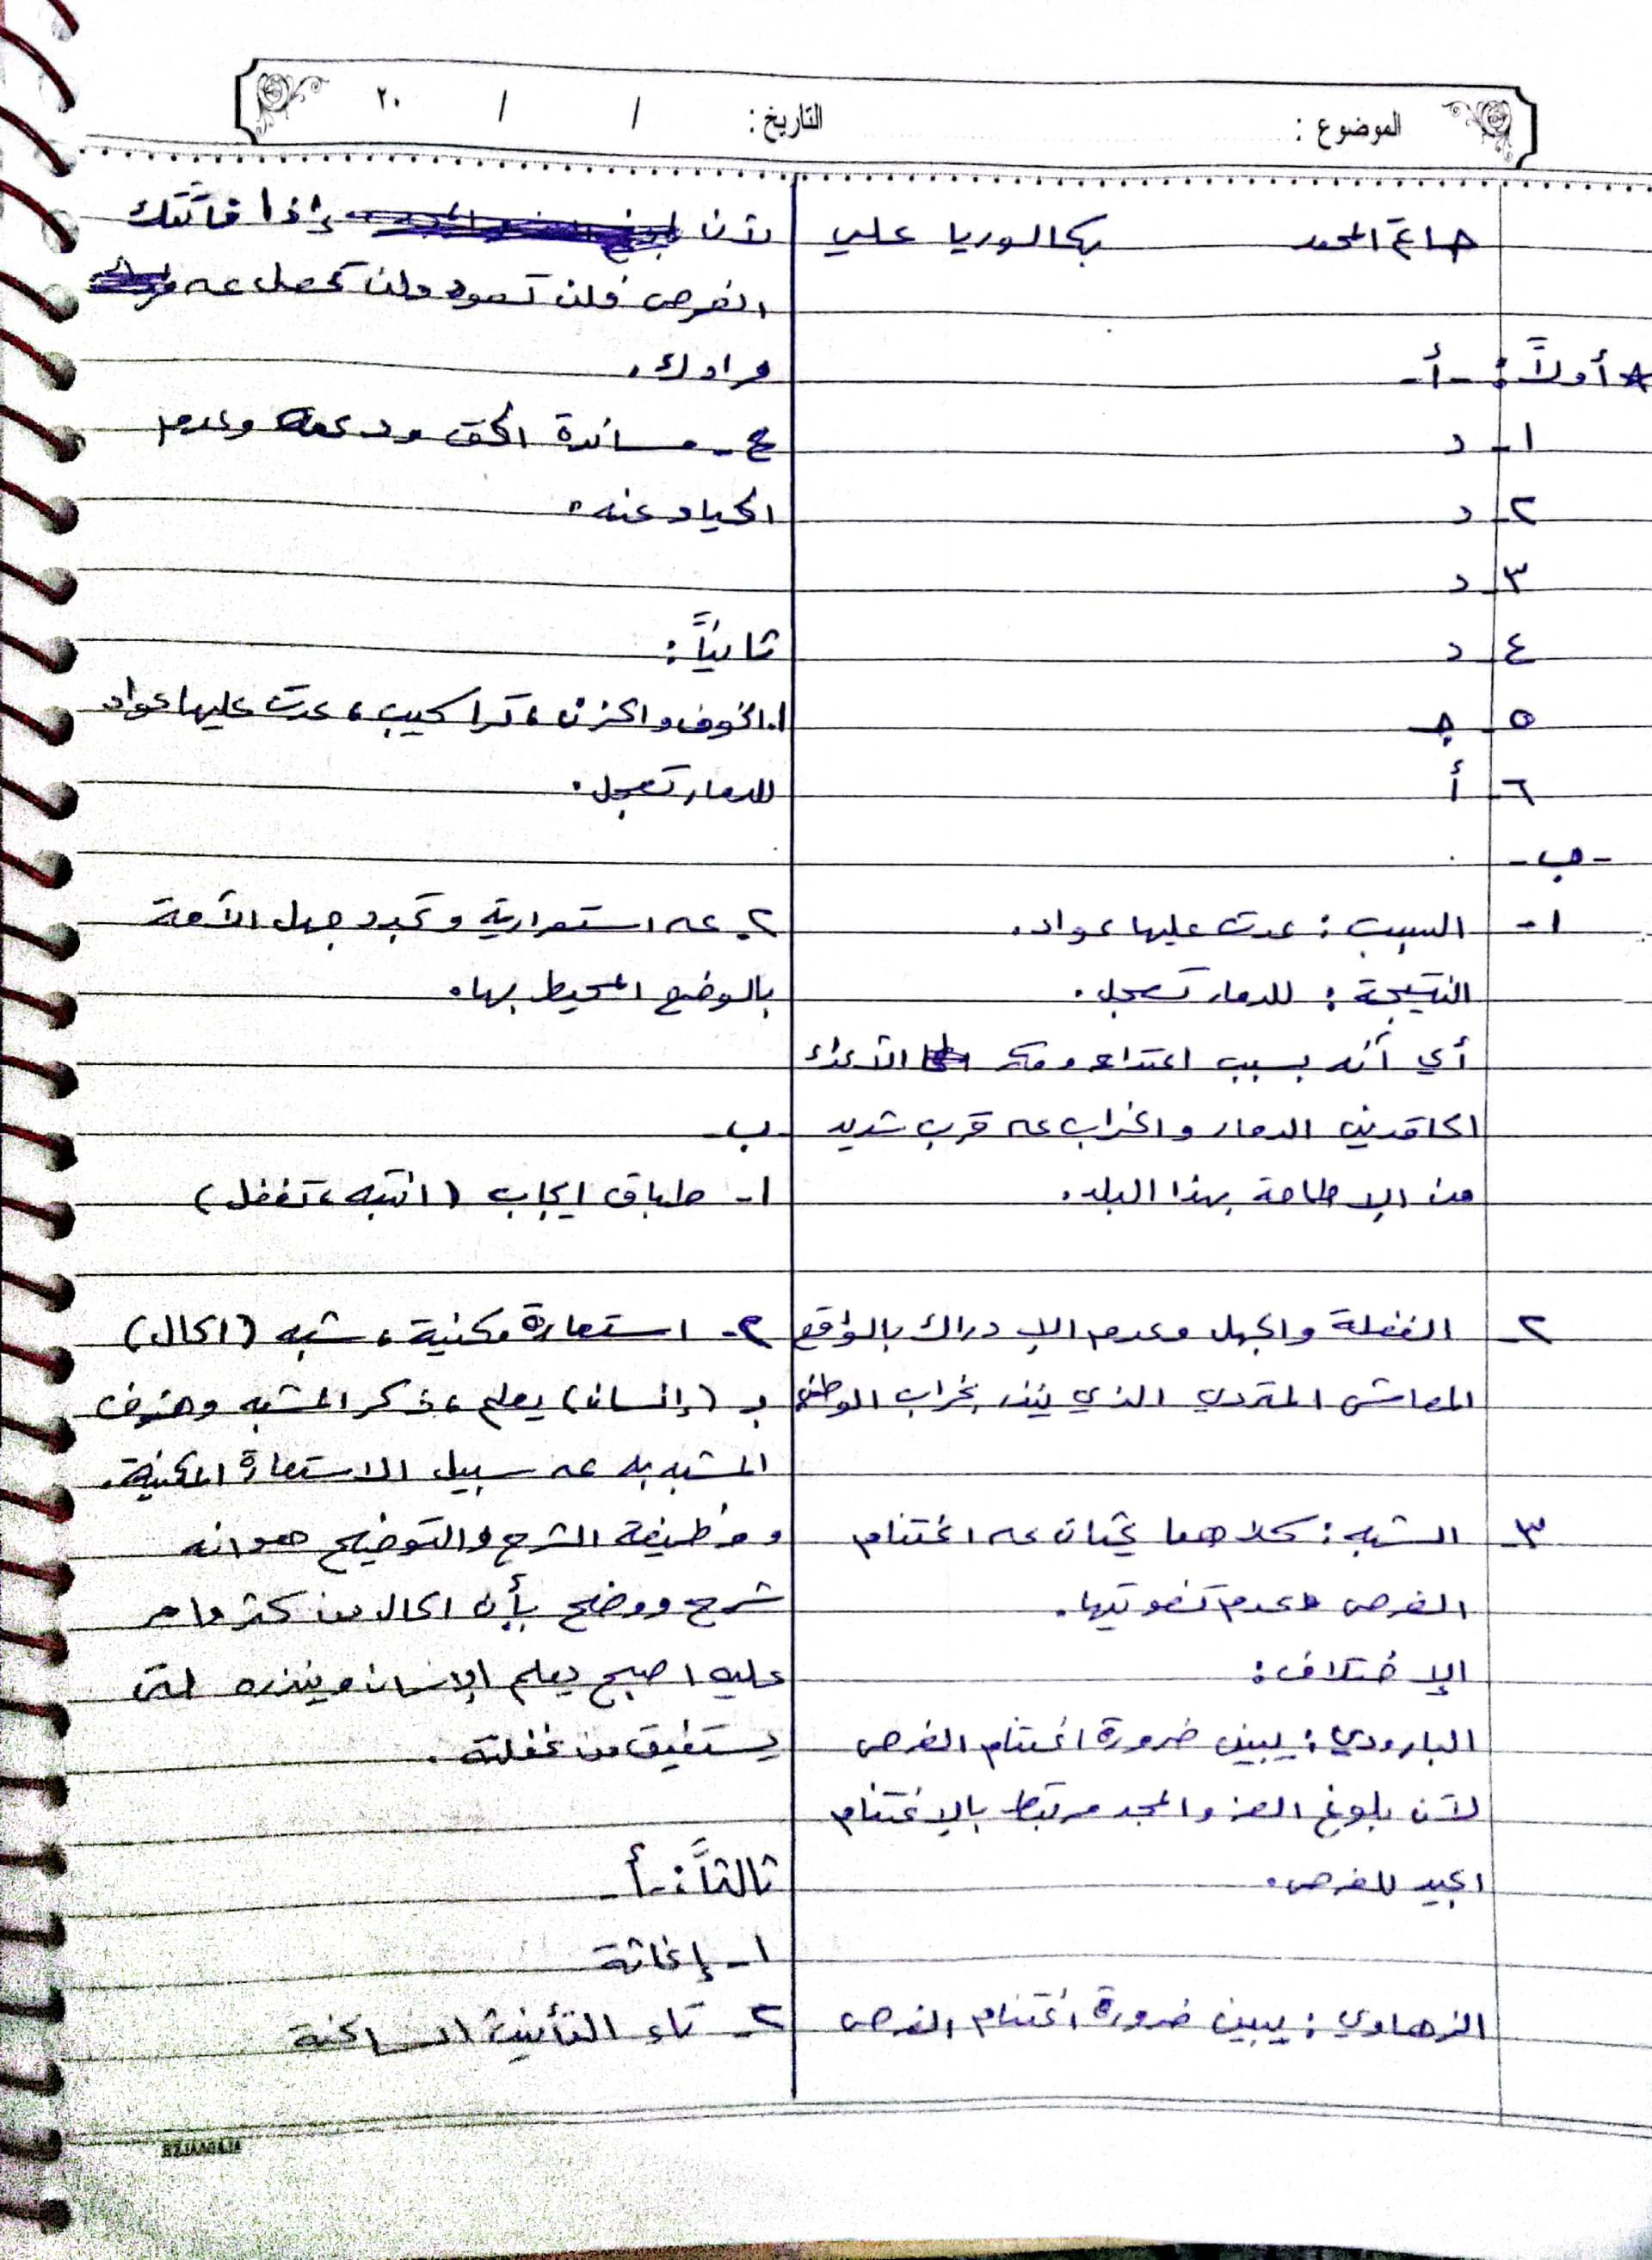 الموضوع :
التاريخ: / / ٢٠
حاتم المحمد بكالوريا علمي
* أولاً: -أ-
١- د
٢- د
٣- د
٤- د
٥- جـ
٦- أ
-ب-
١- السبب : عدت عليها عواد.
النتيجة : للدمار تعجل.
أي أنه بسبب اعتداء ومكر الأعداء
الحاقدين الدمار والخراب عه قرب شديد
من الإطاحة بهذا البلد.
٢- الغفلة والجهل وعدم الإدراك بالواقع
المعاش المتردي الذي ينذر بخراب الوطن
٣- الشبه : كلاهما يحثان عه اغتنام
الفرص وعدم تفويتها.
الإختلاف :
البارودي : يبين ضرورة اغتنام الفرص
لأن بلوغ العز والمجد مرتبط بالإغتنام
الجيد للفرص.
الزهاوي : يبين ضرورة اغتنام الفرص
لأن إذا فاتتك
الفرص فلن تعود ولن تحصل عه
مرادك.
ج- مساندة الحق ودعمه وعدم
الحياد عنه.
ثانياً :
١. الخوف والحزن، تراكيب، عدت عليها عواد
للدمار تعجل.
٢. عه استمرارية وتجدد جهل الأمة
بالوضع المحيط بها.
ب-
١- طباق إيجاب (انتبه، تغفل)
٢- استعارة مكنية، شبه (الحال)
بـ (إنسان) يعلم، ذكر المشبه وحذف
المشبه به عه سبيل الاستعارة المكنية.
ووظيفة الشرح والتوضيح هو انه
شرح ووضح بأن الحال من كثر ما مر
عليه اصبح يعلم الإنسان وينذره لمتى
يستفيق من غفلته.
ثالثاً: -أ-
١- إغاثة
٢- تاء التأنيث الساكنة